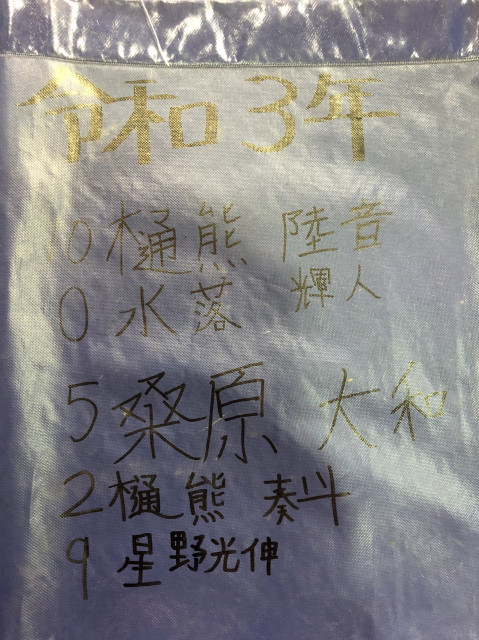 令和3年
10樋熊 陸音
0 水落 輝人
5桑原 大和
2樋熊 奏斗
9 星野光伸